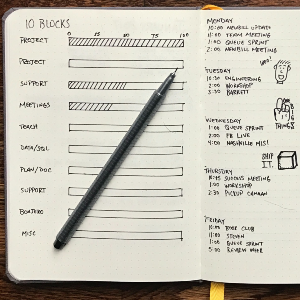 10 BLOCKS
0 25 50 75 100
PROJECT
PROJECT
SUPPORT
MEETINGS
TEACH
DATA/SQL
PLAN/DOC
SUPPORT
BOATING
MISC
MONDAY
10:00 NEWBILL UPDATE
11:00 TEAM MEETING
1:00 QUEUE SPRINT
2:00 NEWBILL MEETING
TUESDAY
10:30 ENGINEERING
2:00 WORKSHOP
3:30 BARRETT
THINGS
WEDNESDAY
1:00 QUEUE SPRINT
2:00 PB LIVE
4:00 NASHVILLE MTG!
SHIP
IT.
THURSDAY
10:45 SUCCESS MEETING
1:00 WORKSHOP
2:30 PICKUP CANAAN
FRIDAY
10:00 BOOK CLUB
11:00 STEVEN
1:00 QUEUE SPRINT
5:00 REVIEW WEEK